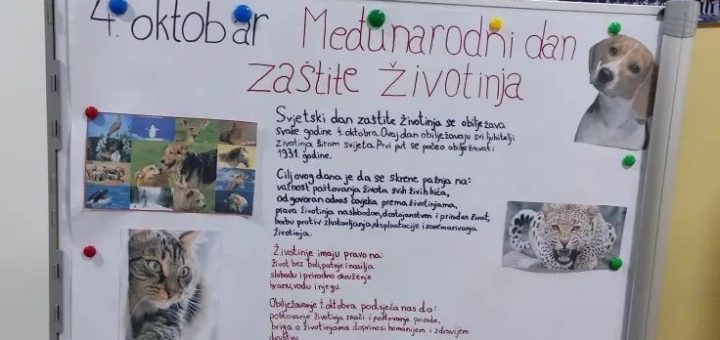 4. oktobar Međunarodni dan
zaštite životinja
Svjetski dan zaštite životinja se obilježava
svake godine 4. oktobra. Ovaj dan obilježavaju svi ljubitelji
životinja širom svijeta. Prvi put se počeo obilježavati
1931. godine.
Cilj ovog dana je da se skrene pažnja na:
važnost poštovanja života svih živih bića,
odgovoran odnos čovjeka prema životinjama,
prava životinja na slobodan, dostojanstven i prirodan život,
borbu protiv zlostavljanja, eksploatacije i zanemarivanja
životinja.
Životinje imaju pravo na:
život bez boli, patnje i nasilja
slobodu i prirodno okruženje
hranu, vodu i njegu.
Obilježavanje 4. oktobra podsjeća nas da:
poštovanje životinja znači i poštovanje prirode,
briga o životinjama doprinosi humanijem i zdravijem
društvu